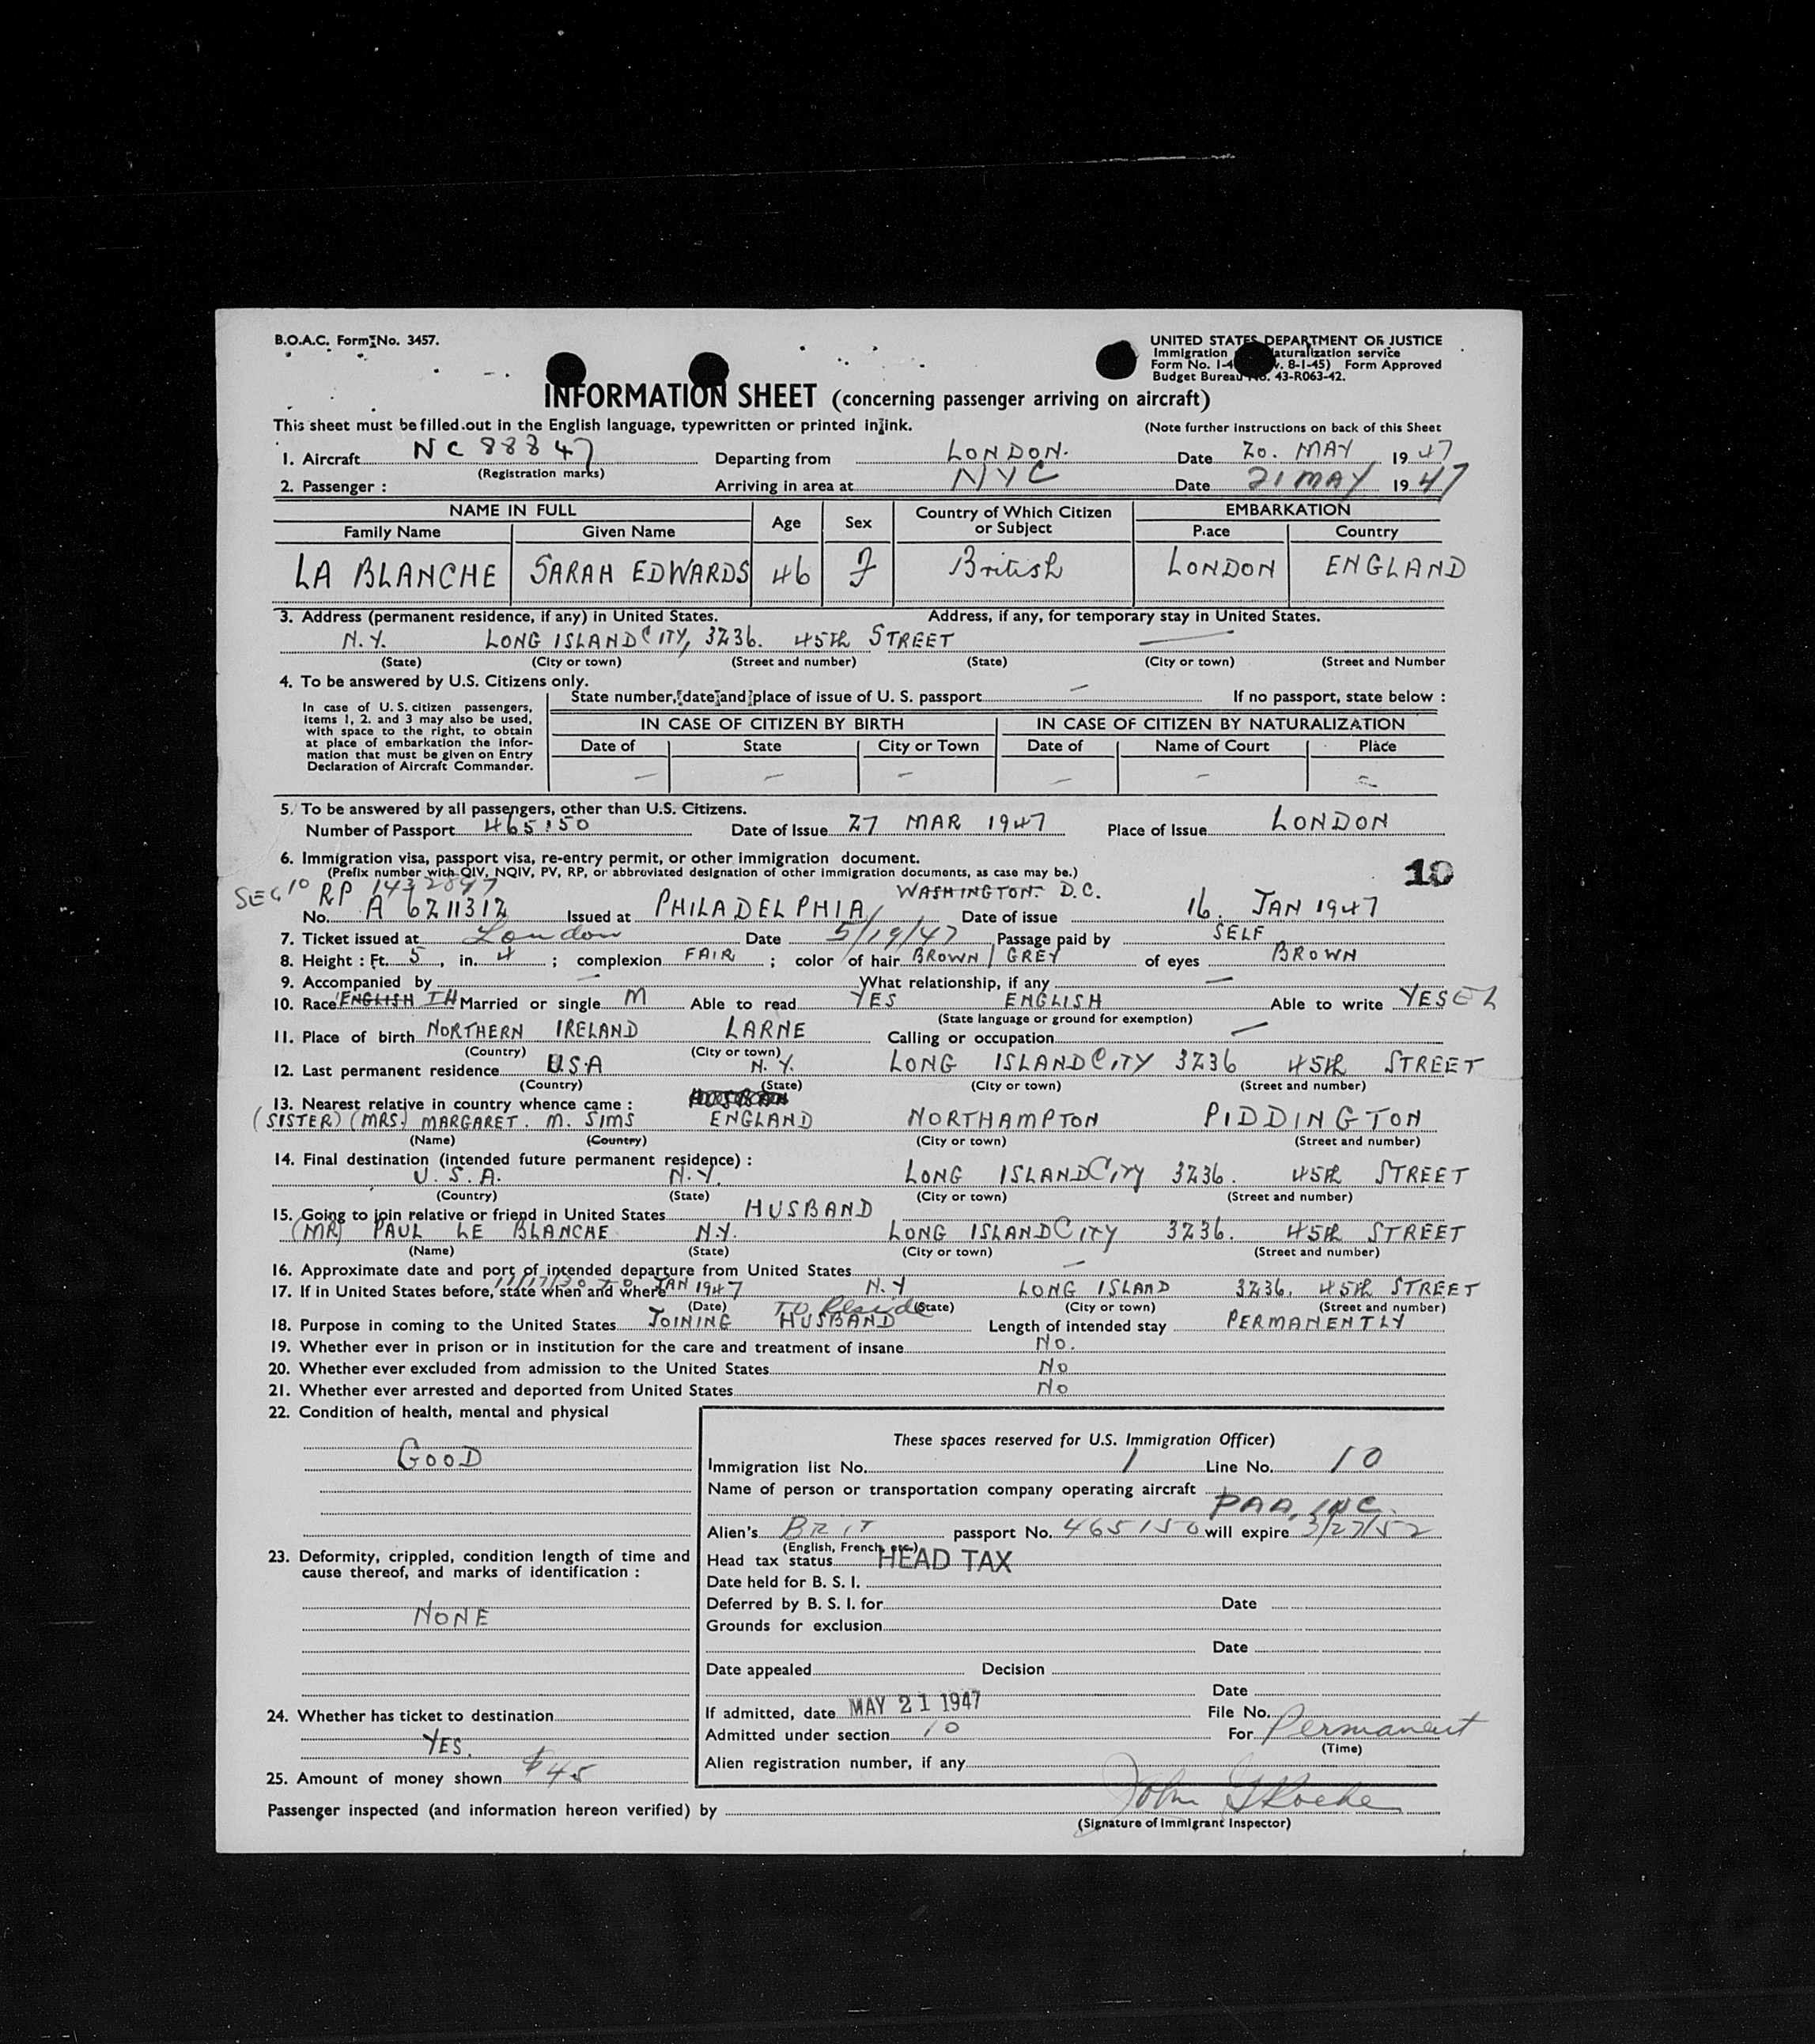 B.O.A.C. Form No. 3457.
UNITED STATES DEPARTMENT OF JUSTICE
Immigration aturalization service
Form No. I-4 v. 8-1-45) Form Approved
Budget Bureau No. 43-R063-42.
INFORMATION SHEET (concerning passenger arriving on aircraft)
This sheet must be filled out in the English language, typewritten or printed in ink. (Note further instructions on back of this Sheet
1. Aircraft NC 88847 Departing from LONDON. Date 20. MAY 1947
(Registration marks)
2. Passenger : Arriving in area at NYC Date 21 MAY 1947
NAME IN FULL Age Sex Country of Which Citizen or Subject EMBARKATION
Family Name Given Name Place Country
LA BLANCHE SARAH EDWARDS 46 F British LONDON ENGLAND
3. Address (permanent residence, if any) in United States. Address, if any, for temporary stay in United States.
N.Y. LONG ISLAND CITY, 3236. 45th STREET —
(State) (City or town) (Street and number) (State) (City or town) (Street and Number
4. To be answered by U.S. Citizens only.
State number, date and place of issue of U. S. passport — If no passport, state below :
In case of U. S. citizen passengers,
items 1, 2. and 3 may also be used,
with space to the right, to obtain
at place of embarkation the infor-
mation that must be given on Entry
Declaration of Aircraft Commander.
IN CASE OF CITIZEN BY BIRTH IN CASE OF CITIZEN BY NATURALIZATION
Date of State City or Town Date of Name of Court Place
— — — — — —
5. To be answered by all passengers, other than U.S. Citizens.
Number of Passport 465150 Date of Issue 27 MAR 1947 Place of Issue LONDON
6. Immigration visa, passport visa, re-entry permit, or other immigration document.
(Prefix number with QIV, NQIV, PV, RP, or abbreviated designation of other immigration documents, as case may be.)
10
SEC 10 RP 1432897 WASHINGTON D.C.
No. A 6211312 Issued at PHILADELPHIA Date of issue 16. JAN 1947
7. Ticket issued at London Date 5/19/47 Passage paid by SELF
8. Height : Ft. 5, in. 4 ; complexion FAIR ; color of hair BROWN / GREY of eyes BROWN
9. Accompanied by — What relationship, if any —
10. Race ENGLISH IH Married or single M Able to read YES ENGLISH Able to write YES
(State language or ground for exemption)
11. Place of birth NORTHERN IRELAND LARNE Calling or occupation —
(Country) (City or town)
12. Last permanent residence U.S.A N.Y. LONG ISLAND CITY 3236 45th STREET
(Country) (State) (City or town) (Street and number)
13. Nearest relative in country whence came :
(SISTER) (MRS.) MARGARET. M. SIMS ENGLAND NORTHAMPTON PIDDINGTON
(Name) (Country) (City or town) (Street and number)
14. Final destination (intended future permanent residence) :
U.S.A. N.Y. LONG ISLAND CITY 3236. 45th STREET
(Country) (State) (City or town) (Street and number)
15. Going to join relative or friend in United States HUSBAND
(MR) PAUL LE BLANCHE N.Y. LONG ISLAND CITY 3236. 45th STREET
(Name) (State) (City or town) (Street and number)
16. Approximate date and port of intended departure from United States —
17. If in United States before, state when and where 11/17/30 TO JAN 1947 N.Y LONG ISLAND 3236. 45th STREET
(Date) (State) (City or town) (Street and number)
To Reside
18. Purpose in coming to the United States JOINING HUSBAND Length of intended stay PERMANENTLY
19. Whether ever in prison or in institution for the care and treatment of insane No.
20. Whether ever excluded from admission to the United States No
21. Whether ever arrested and deported from United States No
22. Condition of health, mental and physical
GOOD
These spaces reserved for U.S. Immigration Officer)
Immigration list No. 1 Line No. 10
Name of person or transportation company operating aircraft
PAA, INC.
Alien's BRIT passport No. 465150 will expire 3/27/52
(English, French, etc.)
23. Deformity, crippled, condition length of time and
cause thereof, and marks of identification :
NONE
Head tax status HEAD TAX
Date held for B. S. I.
Deferred by B. S. I. for Date
Grounds for exclusion
Date
Date appealed Decision
Date
24. Whether has ticket to destination
YES.
If admitted, date MAY 21 1947 File No.
Admitted under section 10 For Permanent
(Time)
Alien registration number, if any
25. Amount of money shown $45
Passenger inspected (and information hereon verified) by John Roche
(Signature of Immigrant Inspector)